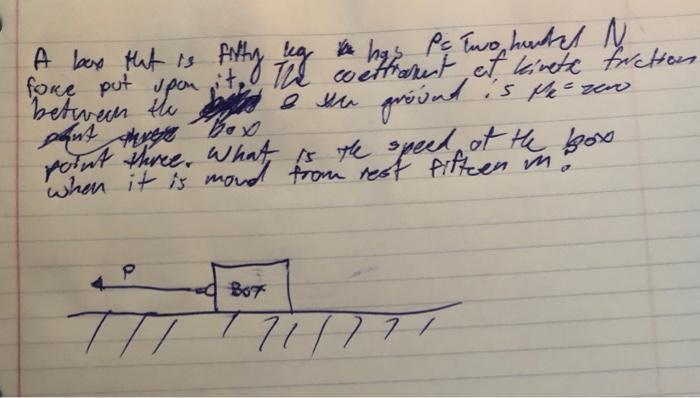 A box that is fifty kg has P= Two hundred N
force put upon it. The coefficient of kinetic friction
between the & the ground is μk = zero
point three box
point three. What is the speed of the box
when it is moved from rest fifteen m.
P
Box